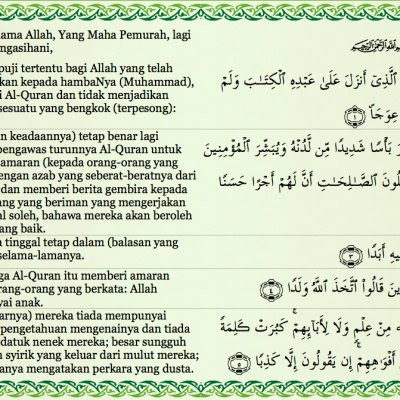 ama Allah, Yang Maha Pemurah, lagi
ngasihani,
بسم الله الرحمن الرحيم
puji tertentu bagi Allah yang telah
kan kepada hambaNya (Muhammad),
i Al-Quran dan tidak menjadikan
sesuatu yang bengkok (terpesong):
ٱلَّذِىٓ أَنزَلَ عَلَىٰ عَبْدِهِ ٱلْكِتَـٰبَ وَلَمْ
عِوَجَا ۜ ١
n keadaannya) tetap benar lagi
pengawas turunnya Al-Quran untuk
amaran (kepada orang-orang yang
engan azab yang seberat-beratnya dari
dan memberi berita gembira kepada
ang yang beriman yang mengerjakan
al soleh, bahawa mereka akan beroleh
ang baik.
رَ بَأْسًا شَدِيدًا مِّن لَّدُنْهُ وَيُبَشِّرَ ٱلْمُؤْمِنِينَ
لُونَ ٱلصَّـٰلِحَـٰتِ أَنَّ لَهُمْ أَجْرًا حَسَنًا
a tinggal tetap dalam (balasan yang
selama-lamanya.
يهِ أَبَدًا ٣
ga Al-Quran itu memberi amaran
orang-orang yang berkata: Allah
yai anak.
ينَ قَالُوا۟ ٱتَّخَذَ ٱللَّهُ وَلَدًا ٤
arnya) mereka tiada mempunyai
pengetahuan mengenainya dan tiada
datuk nenek mereka; besar sungguh
n syirik yang keluar dari mulut mereka;
anya mengatakan perkara yang dusta.
مِنْ عِلْمٍ وَلَا لِـَٔابَآئِهِمْ ۚ كَبُرَتْ كَلِمَةً
أَفْوَٰهِهِمْ ۚ إِن يَقُولُونَ إِلَّا كَذِبًا ٥